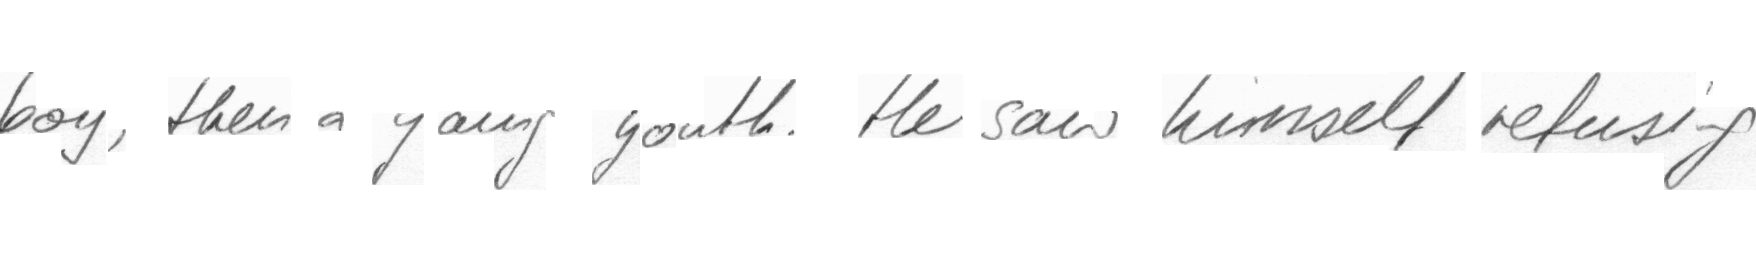 boy, then a young youth. He saw himself refusing